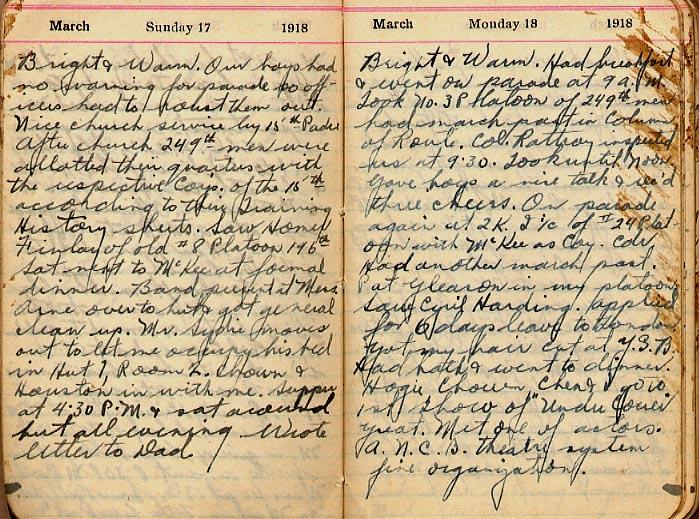 March Sunday 17 1918
Bright & Warm. Our boys had
no warning for parade so off-
icers had to roust them out.
Nice church service by 15th Padre
After church 249th men were
allotted their quarters with
the respective Coys. of the 15th
according to their training
History sheets. Saw Homer
Finlay of old #8 Platoon 196th
Sat next to McKee at formal
dinner. Band present at Mess
Came over to hut & got general
clean up. Mr. moves
out to let me occupy his bed
in Hut 1, Room 2. Chown &
Houston in with me. Supper
at 4:30 P.M. & sat around
hut all evening Wrote
letter to Dad
March Monday 18 1918
Bright & Warm. Had breakfast
& went on parade at 9 A.M.
Took No. 3 Platoon of 249th men
had march past in Column
of Route. Col. inspected
us at 9:30. Took until Noon
Gave boys a nice talk & rec'd
three cheers. On parade
again at 2 K. I/c of #24 Plat-
oon with McKee as Coy. Cdr.
Had another march past
Pat Gleason in my platoon
Saw Cyril Harding. applied
for 6 days leave to London
Got my hair cut at
Had bath & went to dinner.
Hogie Chown, & go to
show of "Under Cover"
great. Met one of actors.
A. N. C. B. theatre system
fine organization.